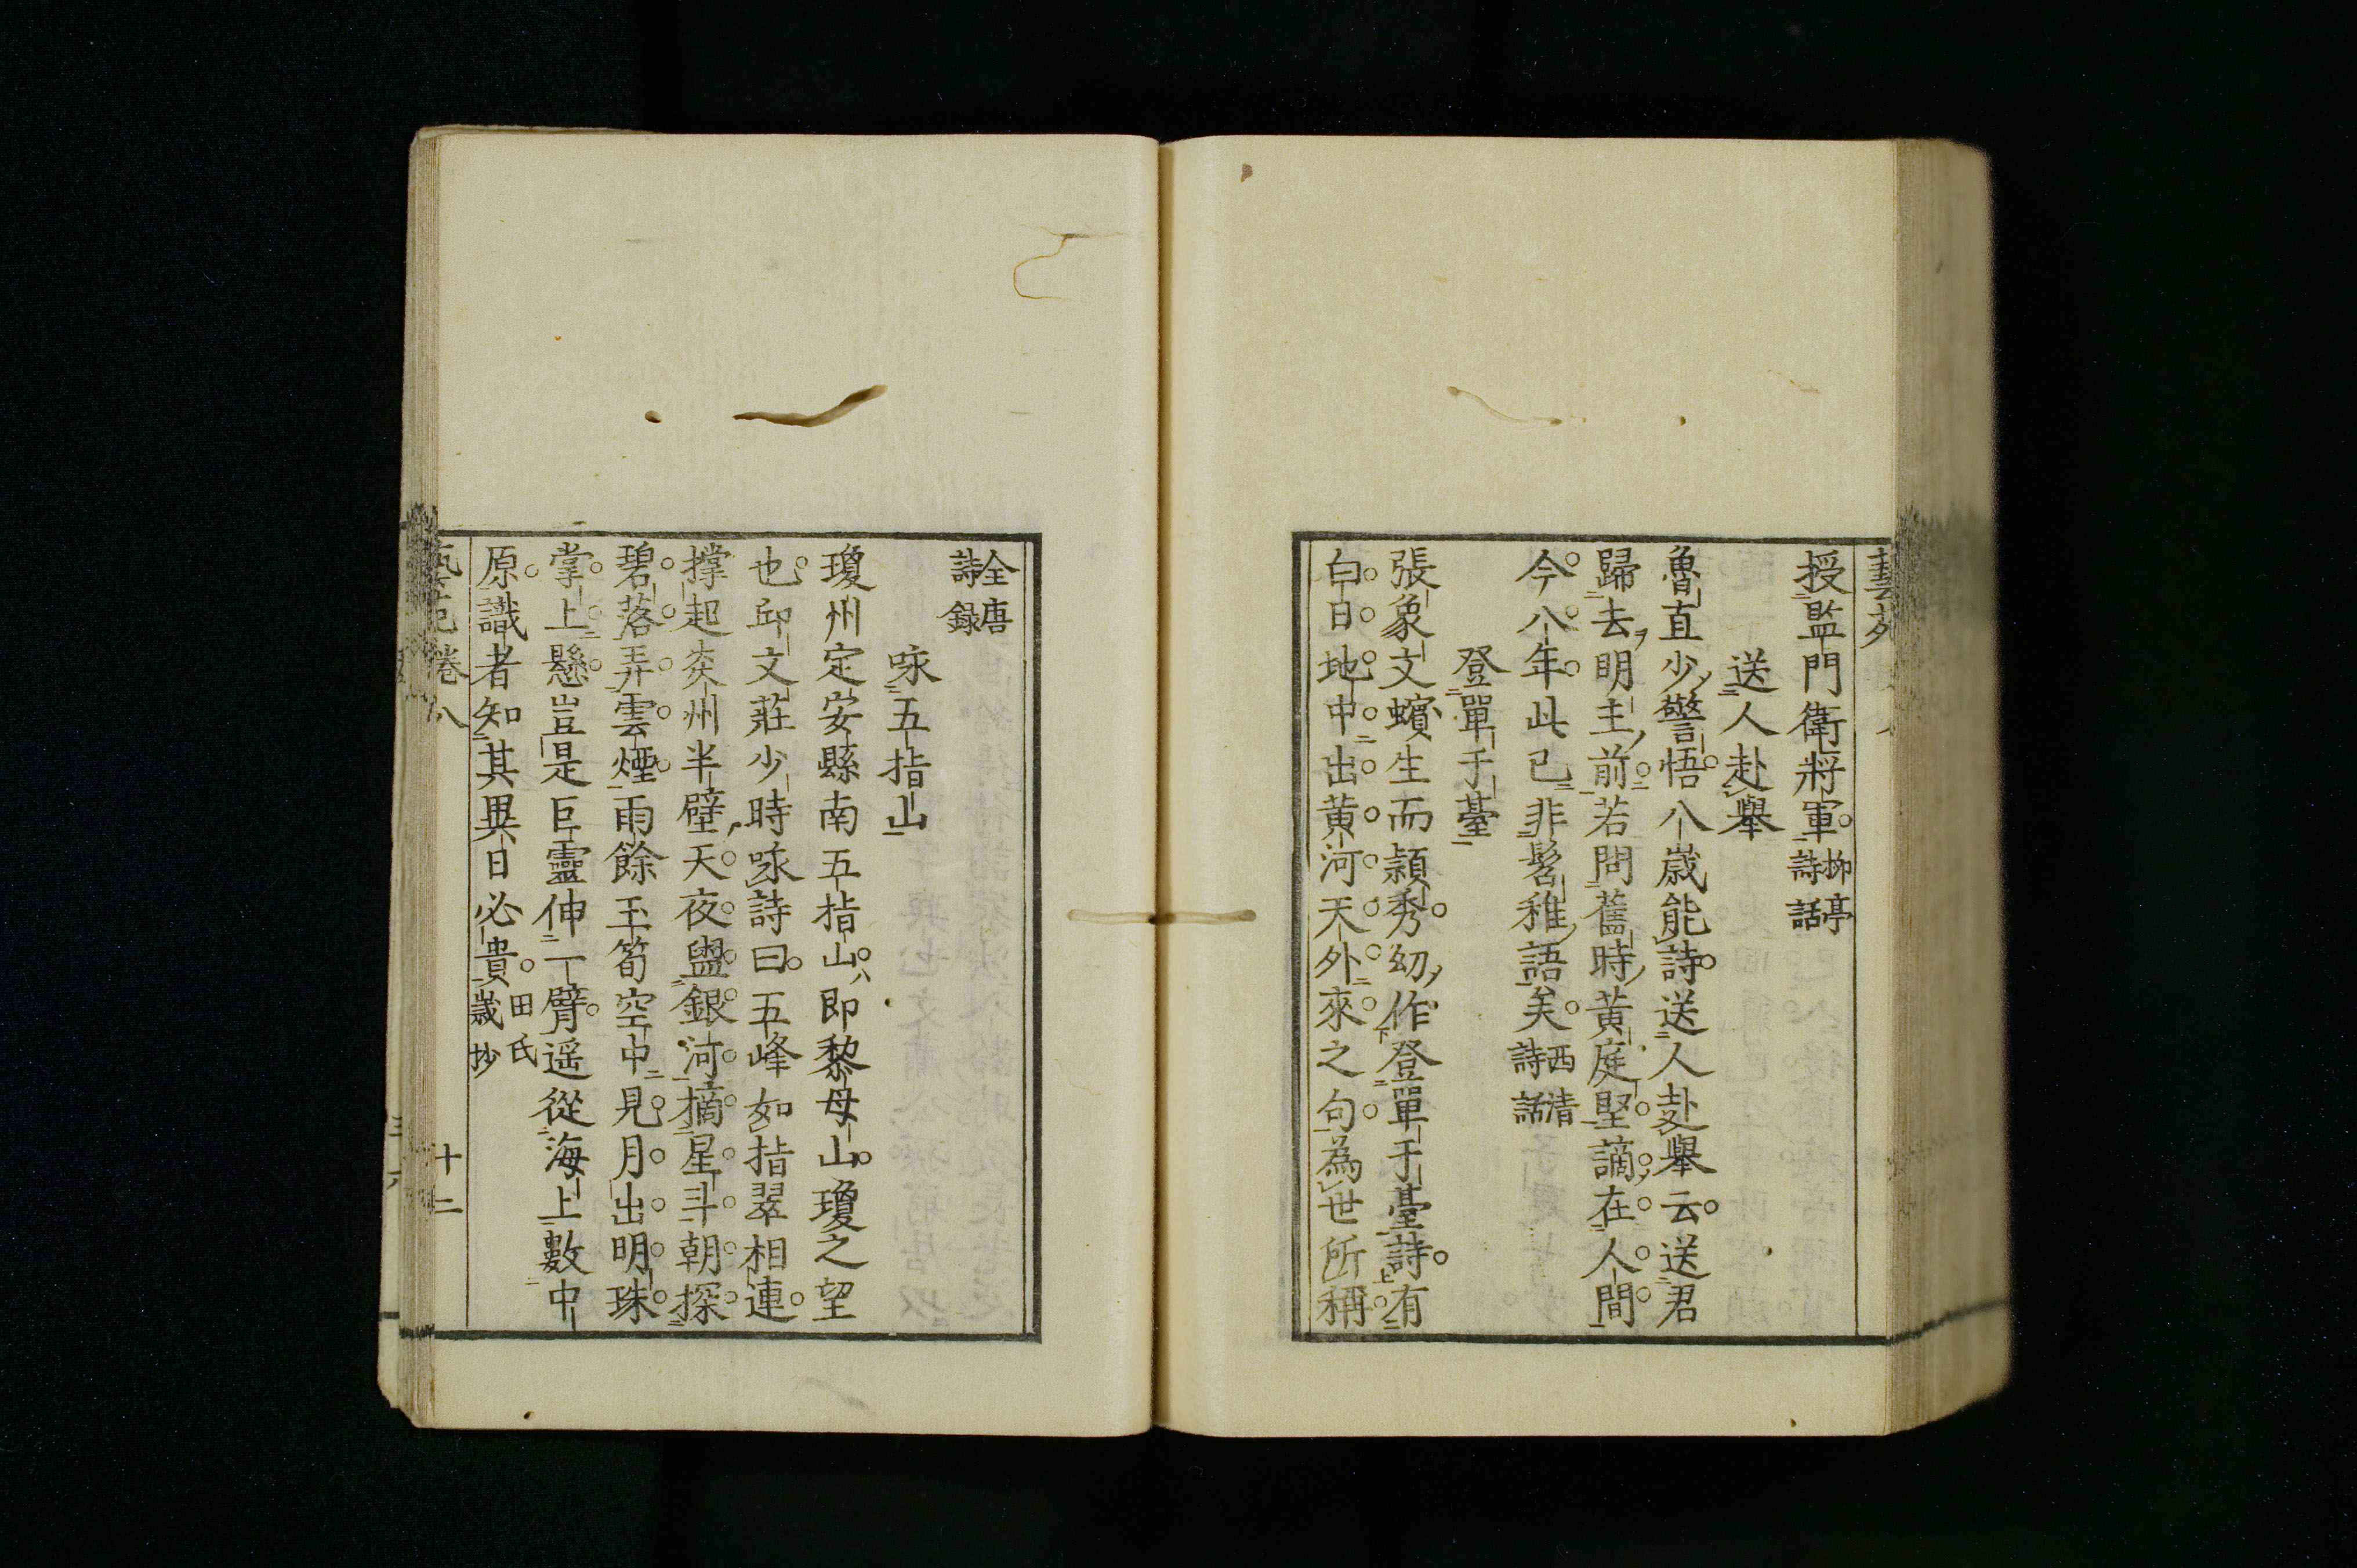 藝苑
授監門衛將軍柳亭詩話
送人赴舉
魯直少警悟八歳能詩送人赴舉云送君
歸去明主前若問舊時黄庭堅謫在人間
今八年此已非髫稚語矣西清詩話
登單于臺
張象文蠙生而頴秀幼作登單于臺詩有
白日地中出黄河天外來之句為世所稱
全唐詩録
咏五指山
瓊州定安縣南五指山即黎母山瓊之望
也邱文莊少時咏詩曰五峰如指翠相連
撑起炎州半壁天夜盥銀河摘星斗朝探
碧落弄雲煙雨餘玉筍空中見月出明珠
掌上懸豈是巨靈伸一臂遥從海上數中
原識者知其異日必貴田氏歳抄
藝苑卷八 十二